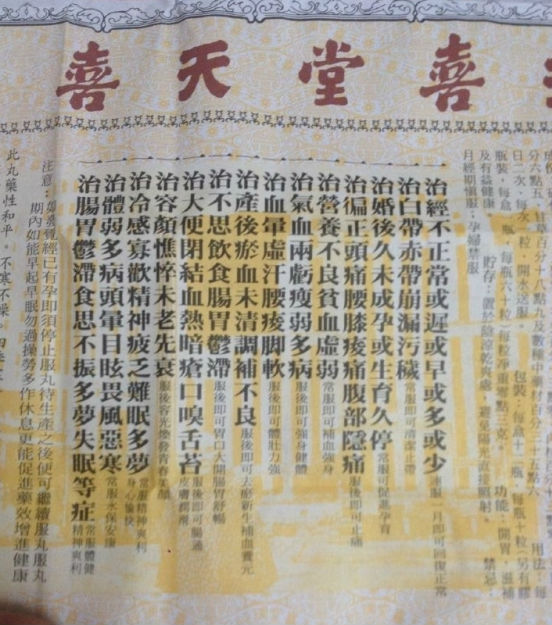 喜堂天喜
分六點五，甘草百分十八點九及數種中藥材百分二十五點六
日一次，每次一粒，開水送服。
瓶裝，每盒一瓶，每瓶六十粒）每粒淨重零點三克。功能：開胃，滋補
及有益健康。貯存：置於陰涼乾爽處，避免陽光直接照射。
月經期慎服，孕婦禁服
治經不正常或遲或早或多或少 常服一月即可回復正常
治白帶赤帶崩漏污穢 常服即可清潔止帶
治婚後久未成孕或生育久停 常服可促進孕育
治偏正頭痛腰膝痠痛腹部隱痛 服後即可止痛
治營養不良貧血虛弱 常服即可補血強身
治氣血兩虧瘦弱多病 服後即可強身健體
治血暈虛汗腰痠腳軟 服後即可體壯力強
治產後瘀血未清調補不良 服後即可去瘀新生補血養元
治不思飲食腸胃鬱滯 服後即可胃口大開腸胃舒暢
治大便閉結血熱暗瘡口嗅舌苔 服後即可腸通皮膚潤滑
治容顏憔悴未老先衰 服後容光煥發青春美顏
治冷感寡歡精神疲乏難眠多夢 常服精神爽利身心愉快
治體弱多病頭暈目眩畏風惡寒 常服永保安康
治腸胃鬱滯食思不振多夢失眠等症 常服體健精神爽利
注意：如婦有經已有孕即須停止服丸待生產之後便可繼續服丸服丸
期內如能早起早眠勿過操勞多作休息更能促進藥效增進健康
此丸藥性和平，不寒不燥，四季